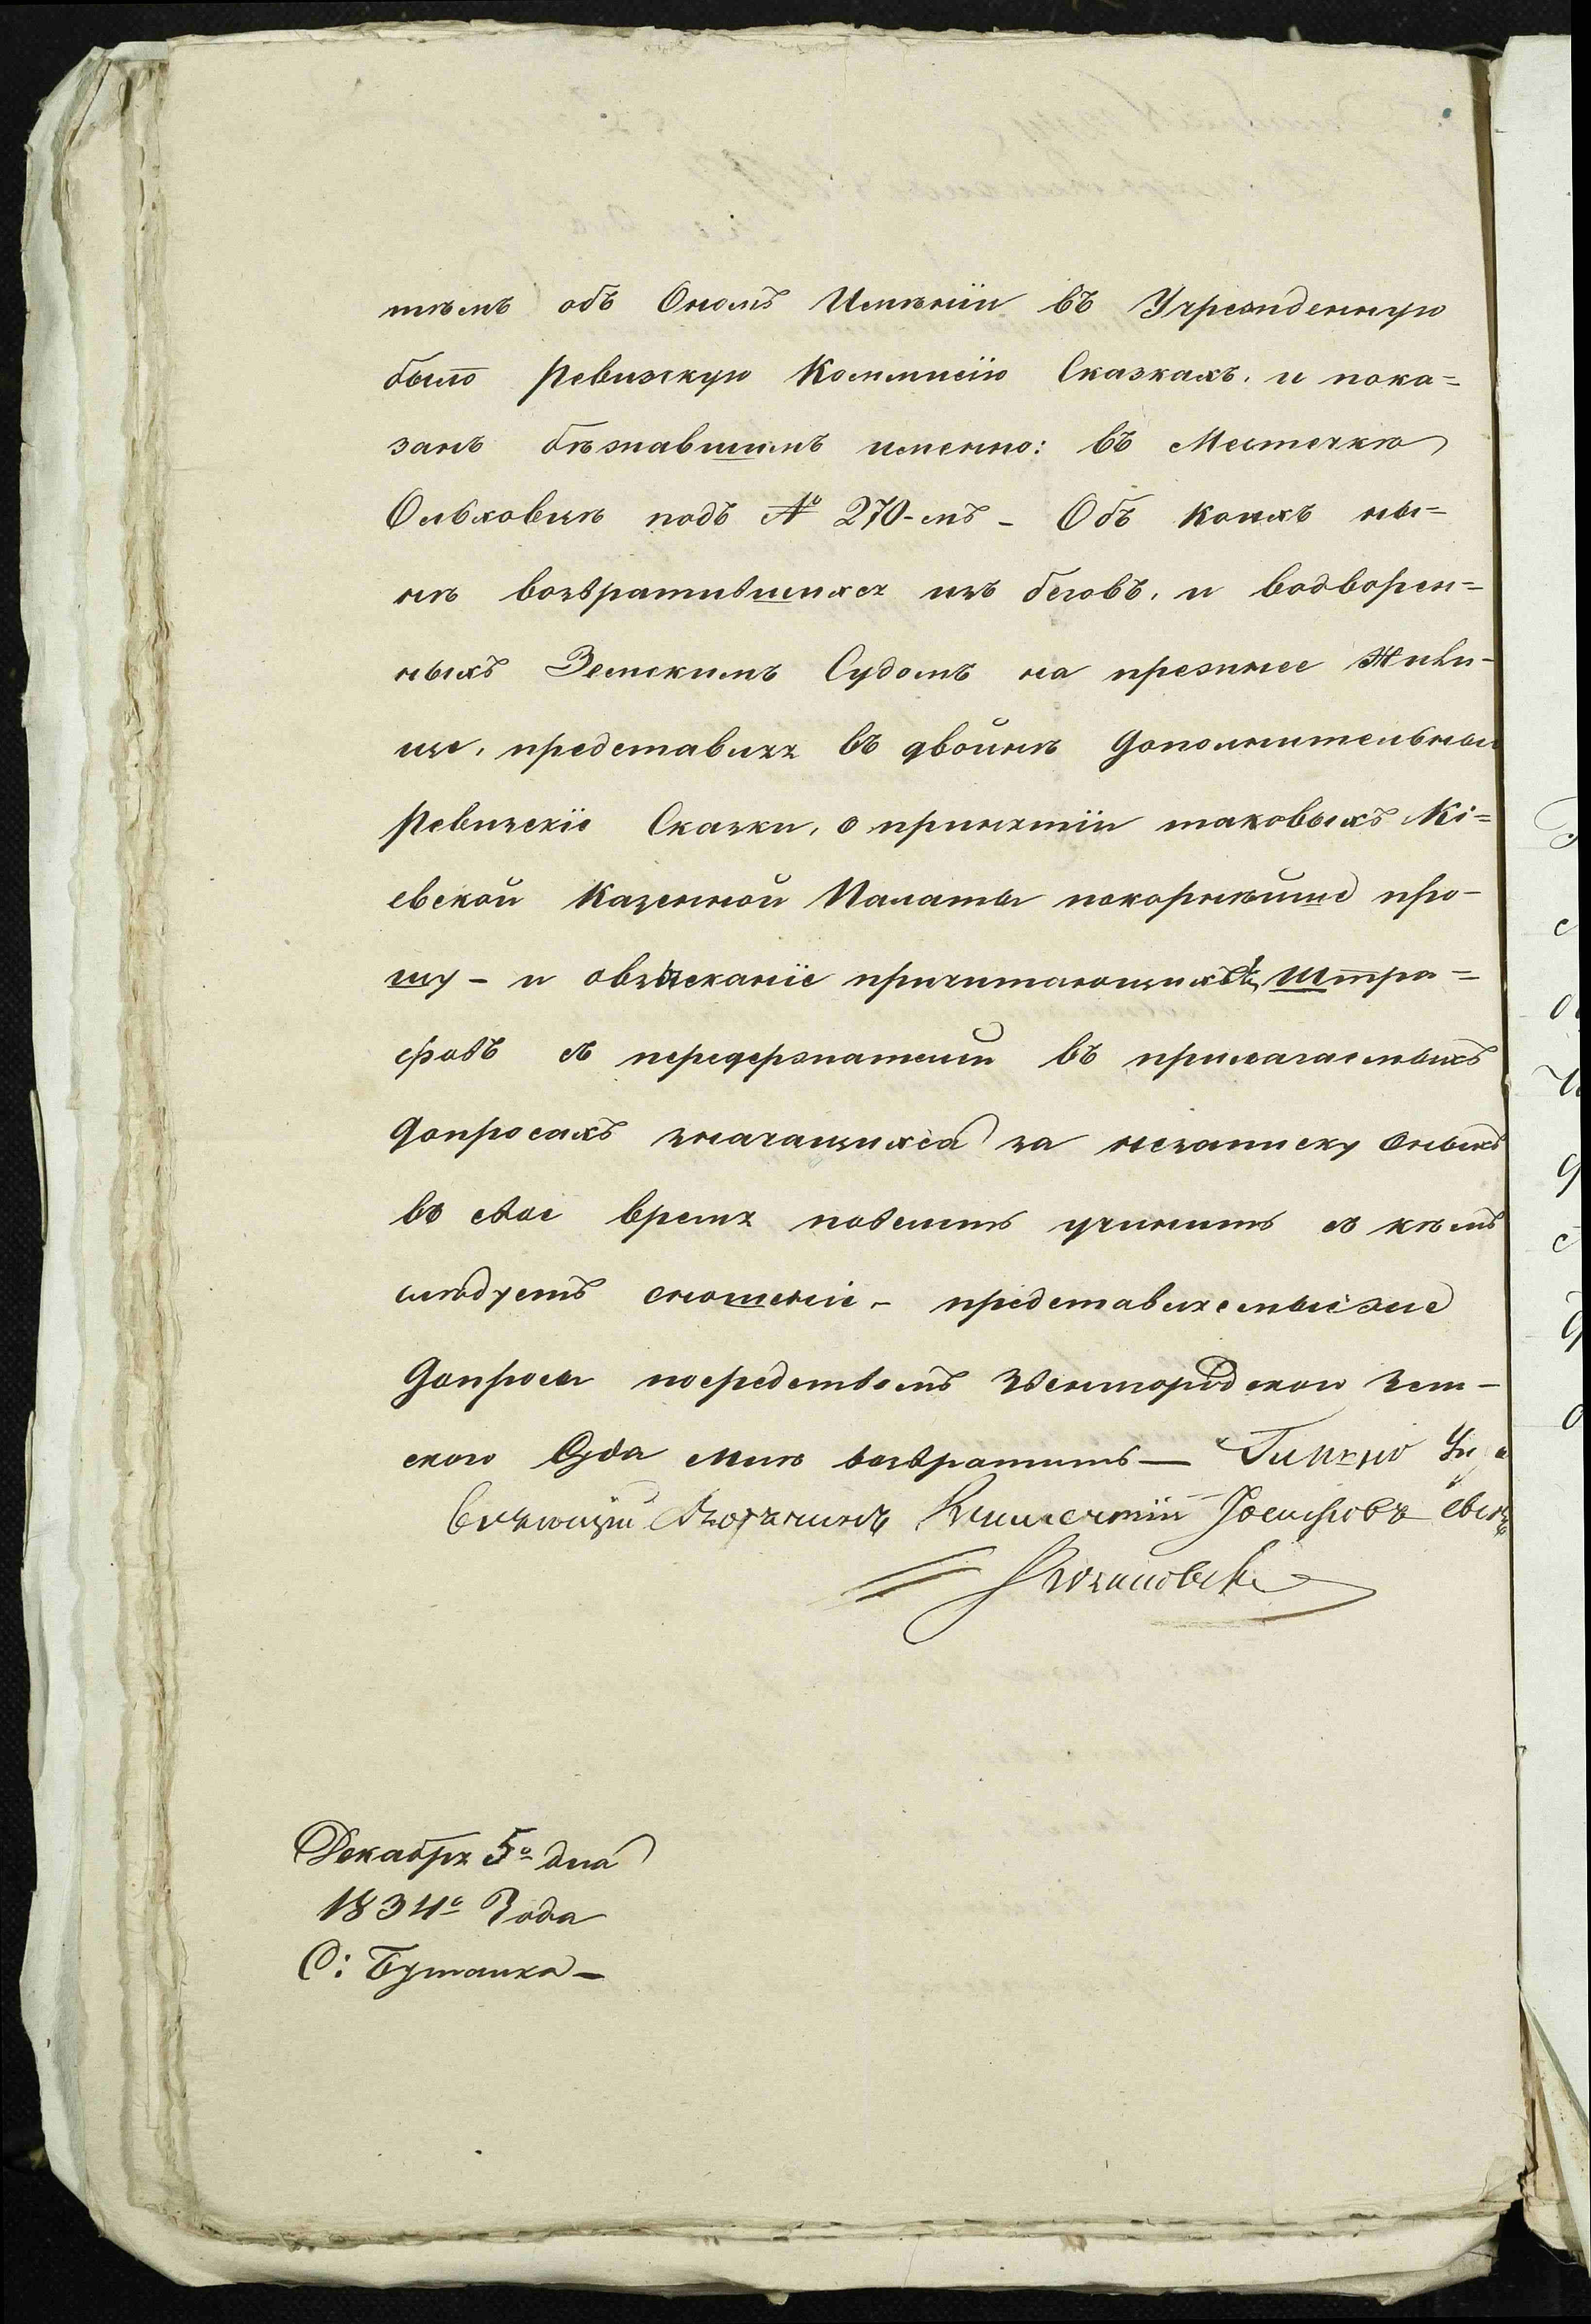 тѣмъ объ Ономъ Имѣніи въ Учрежденную
было Ревизскую Коммисію Сказкахъ, и пока=
занъ бѣжавшимъ именно: въ Местечкѣ
Ольховцѣ подъ № 270-мъ - Объ коихъ ны=
нѣ возвратившихся изъ беговъ, и водворен=
ныхъ Земскимъ Судомъ на прежнее Жили-
ще, представляя въ двойнѣ дополнительныи
Ревизскіе Сказки, о принятіи таковыхъ Кі=
евской Казенной Палаты покорнѣйше про-
шу - и овзысканіе причитающихъ Штра=
фовъ съ передержателей въ прилагаемыхъ
допросахъ значащихся за незаписку оныхъ
въ свое время повелить учинить съ кѣмъ
слѣдуетъ сношеніе - представляемые же
Допросы посредствомъ Звенигородскаго Зем-
скаго Суда мнѣ возвратить —
Декабря 5º дня
1834º Года
С: Бужанка —